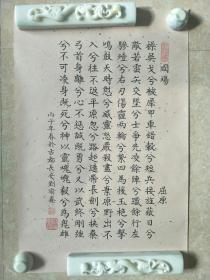 國殤 屈原
操吳戈兮被犀甲車錯轂兮短兵接旌蔽日兮
敵若雲矢交墜兮士爭先凌餘陣兮躐餘行左
驂殪兮右刃傷霾兩輪兮縶四馬援玉枹兮擊
鳴鼓天時懟兮威靈怒嚴殺盡兮棄原野出不
入兮往不返平原忽兮路超遠帶長劍兮挾秦
弓首身離兮心不懲誠既勇兮又以武終剛強
兮不可凌身既死兮神以靈魂魄毅兮爲鬼雄
丙子年春於古都長安劉